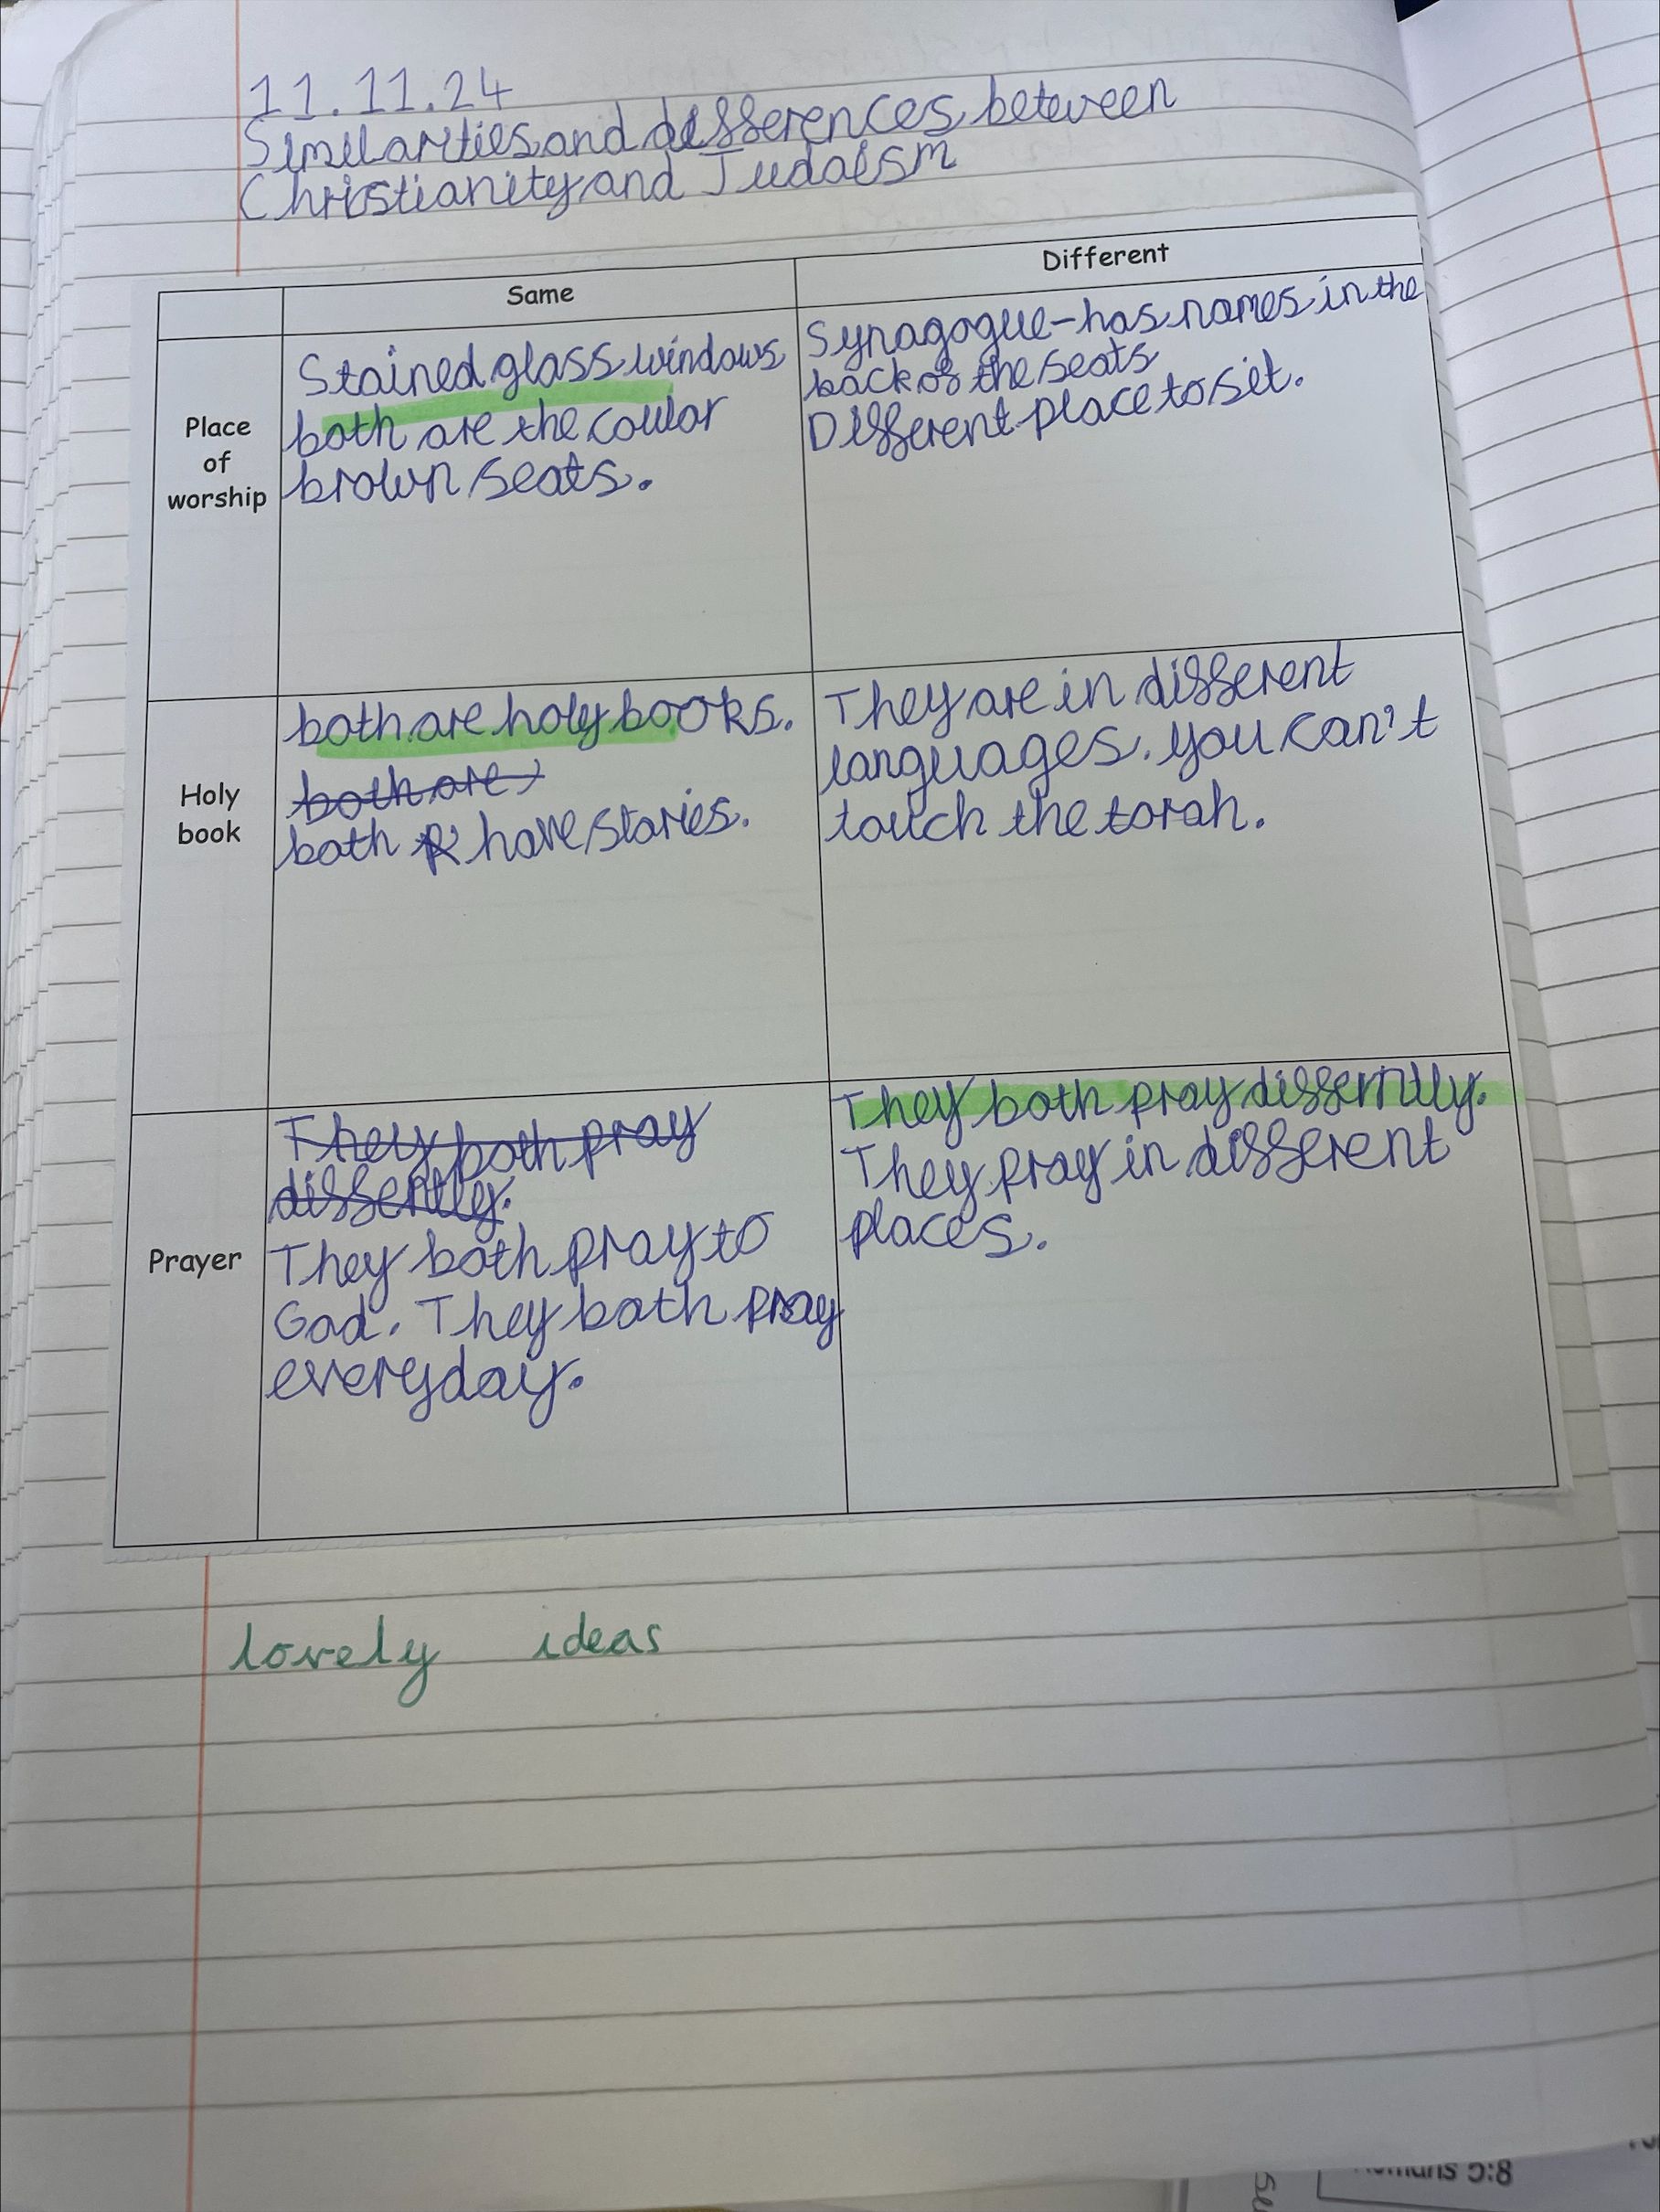 11.11.24
Similarities and differences between
Christianity and Judaism
Same
Different
Place
of
worship
Stained glass windows
both are the coulor
brown seats.
Synagogue-has names in the
back of the seats
Different place to sit.
Holy
book
both are holy books.
both are
both have stories.
They are in different
languages. you can't
touch the torah.
Prayer
They both pray
differtly.
They both pray to
God. They both pray
everyday.
They both pray differntlly.
They pray in different
places.
lovely ideas
5:8